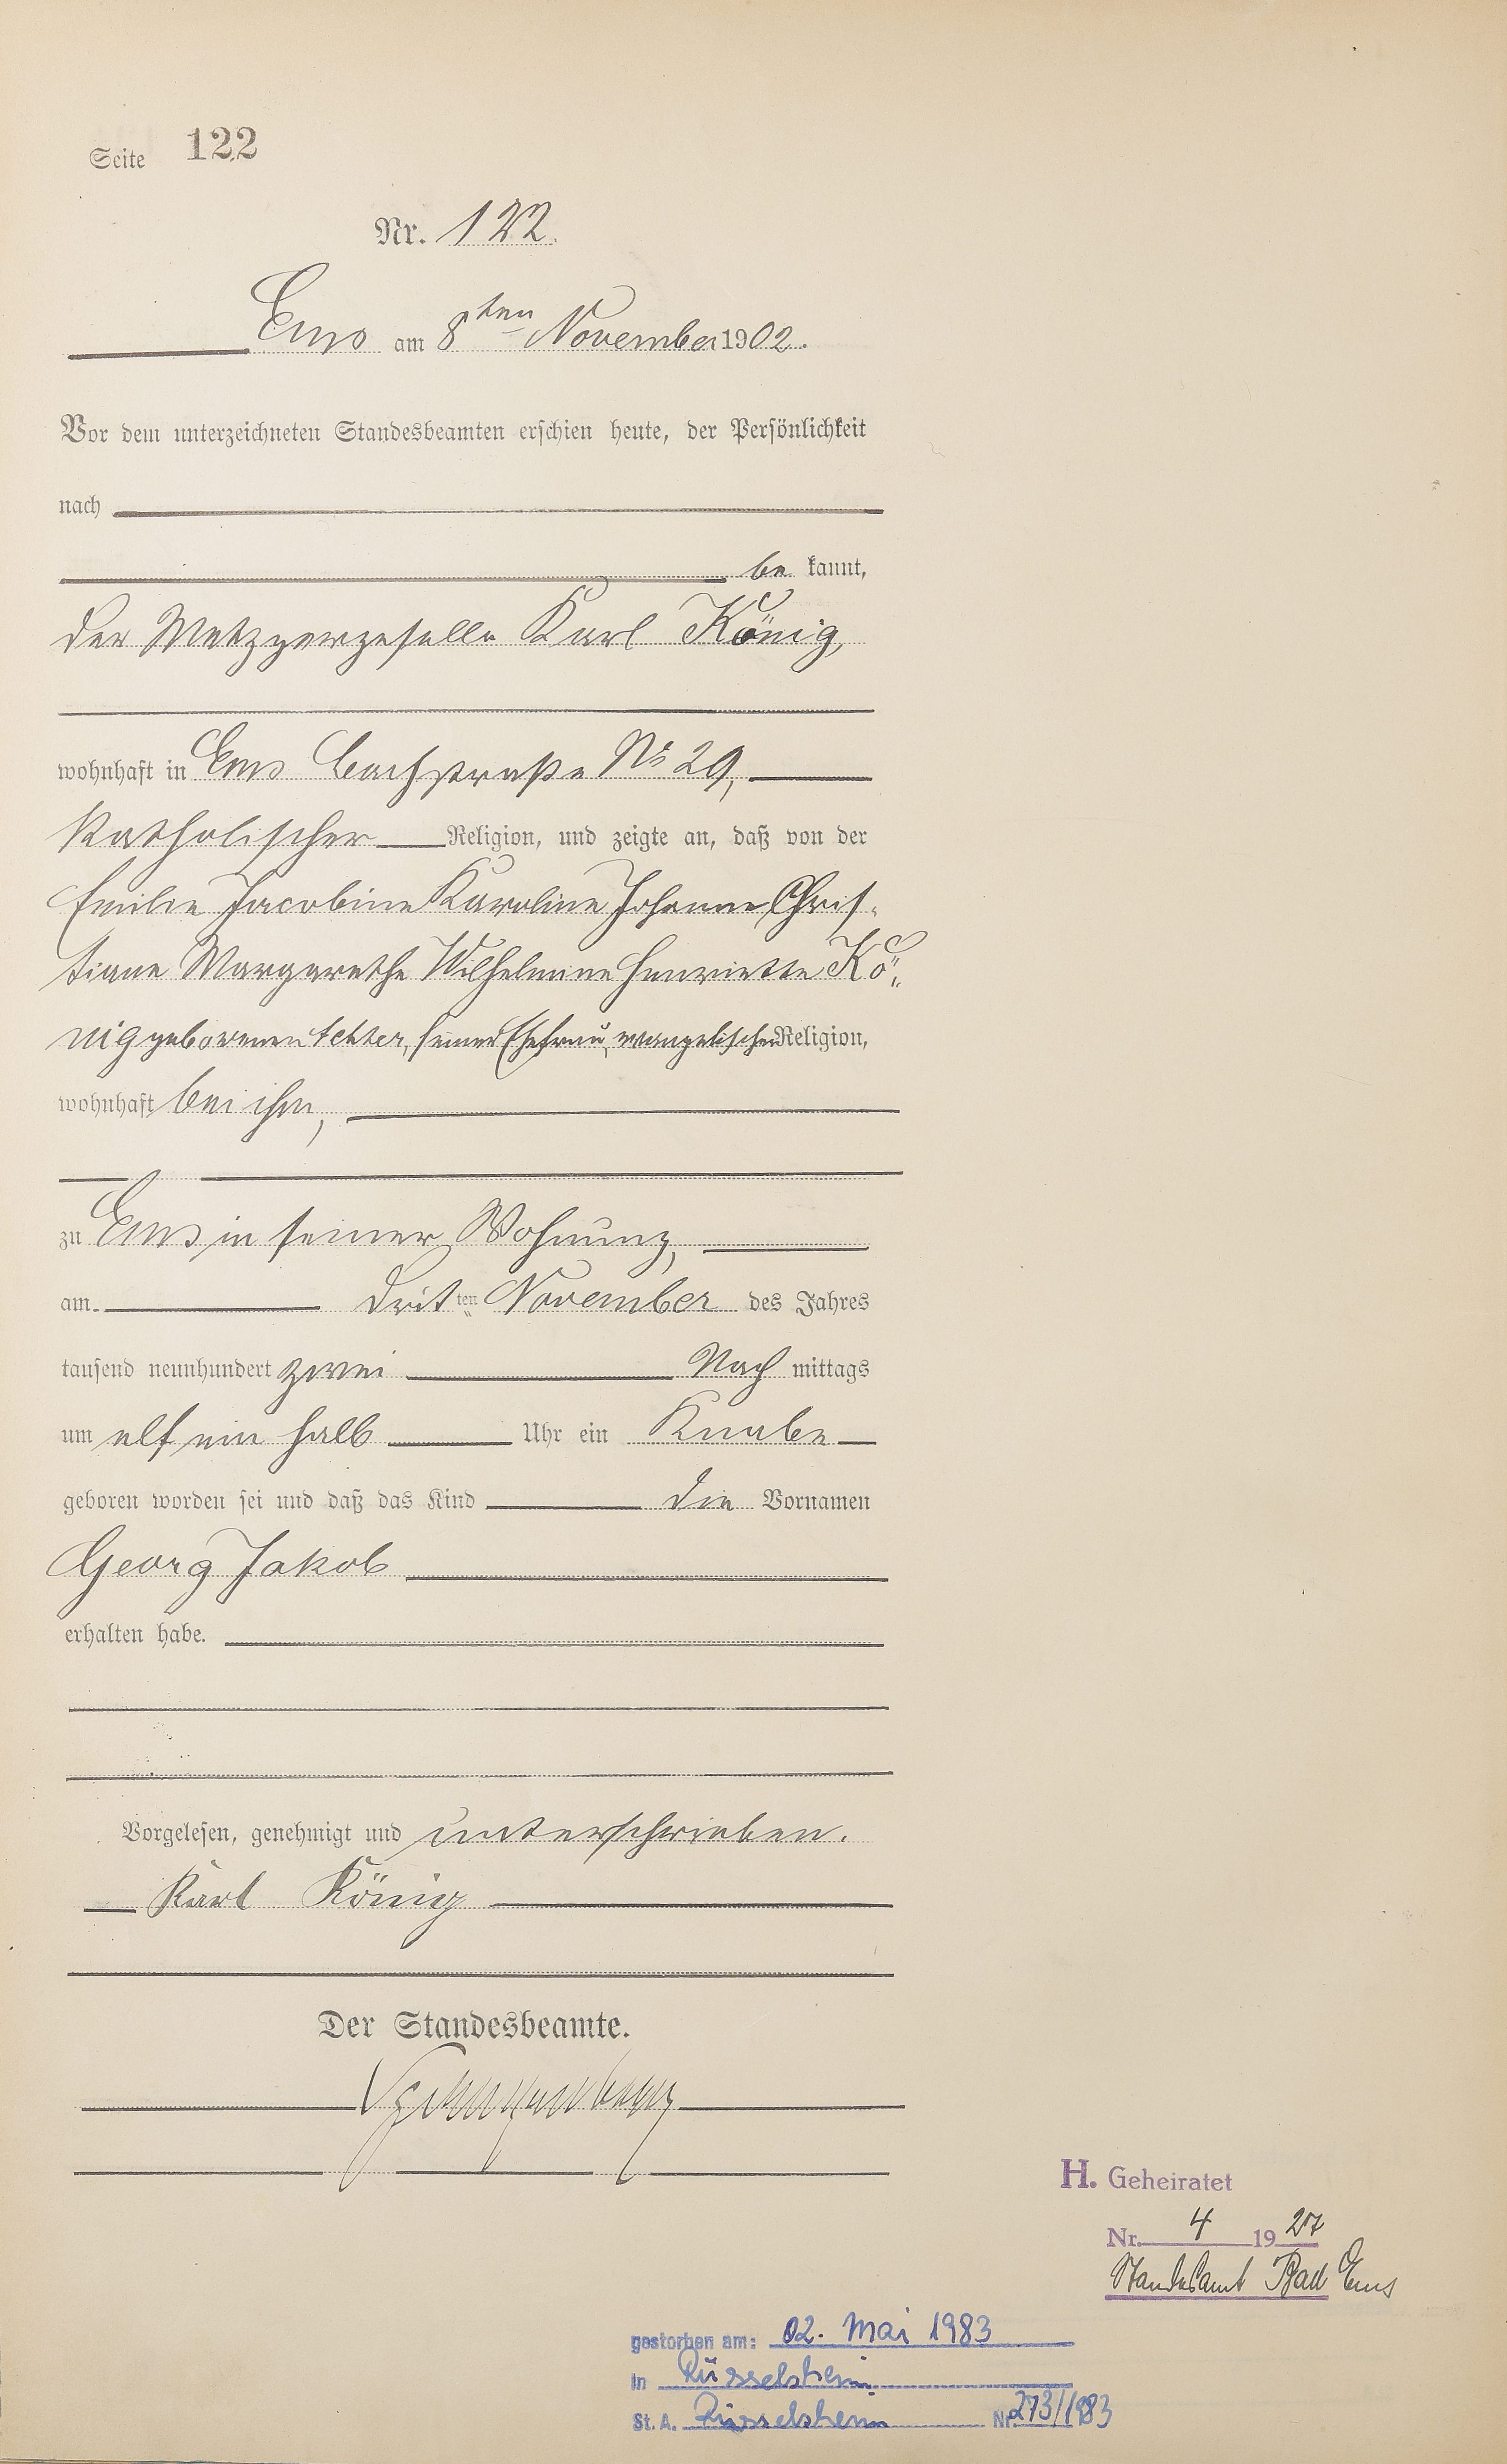 Seite 122
Nr. 122.
Ems am 8ten November 1902.
Vor dem unterzeichneten Standesbeamten erschien heute, der Persönlichkeit
nach
be kannt,
der Metzgergeselle Karl König,
wohnhaft in Ems Bachstraße No 29,
katholischer Religion, und zeigte an, daß von der
Emilie Jacobine Karoline Johanne Chris-
tiane Margarethe Wilhelmine Henriette Kö„
nig geborenen Echter, seiner Ehefrau, evangelischer Religion,
wohnhaft bei ihm,
zu Ems in seiner Wohnung,
am dritten November des Jahres
tausend neunhundert zwei Nach mittags
um elf ein halb Uhr ein Knabe
geboren worden sei und daß das Kind die Vornamen
Georg Jakob
erhalten habe.
Vorgelesen, genehmigt und unterschrieben.
Karl König
Der Standesbeamte.
H. Geheiratet
Nr. 4 1927
Standesamt Bad Ems
gestorben am: 02. Mai 1983
in Rüsselsheim
St. A. Rüsselsheim Nr. 273/1983